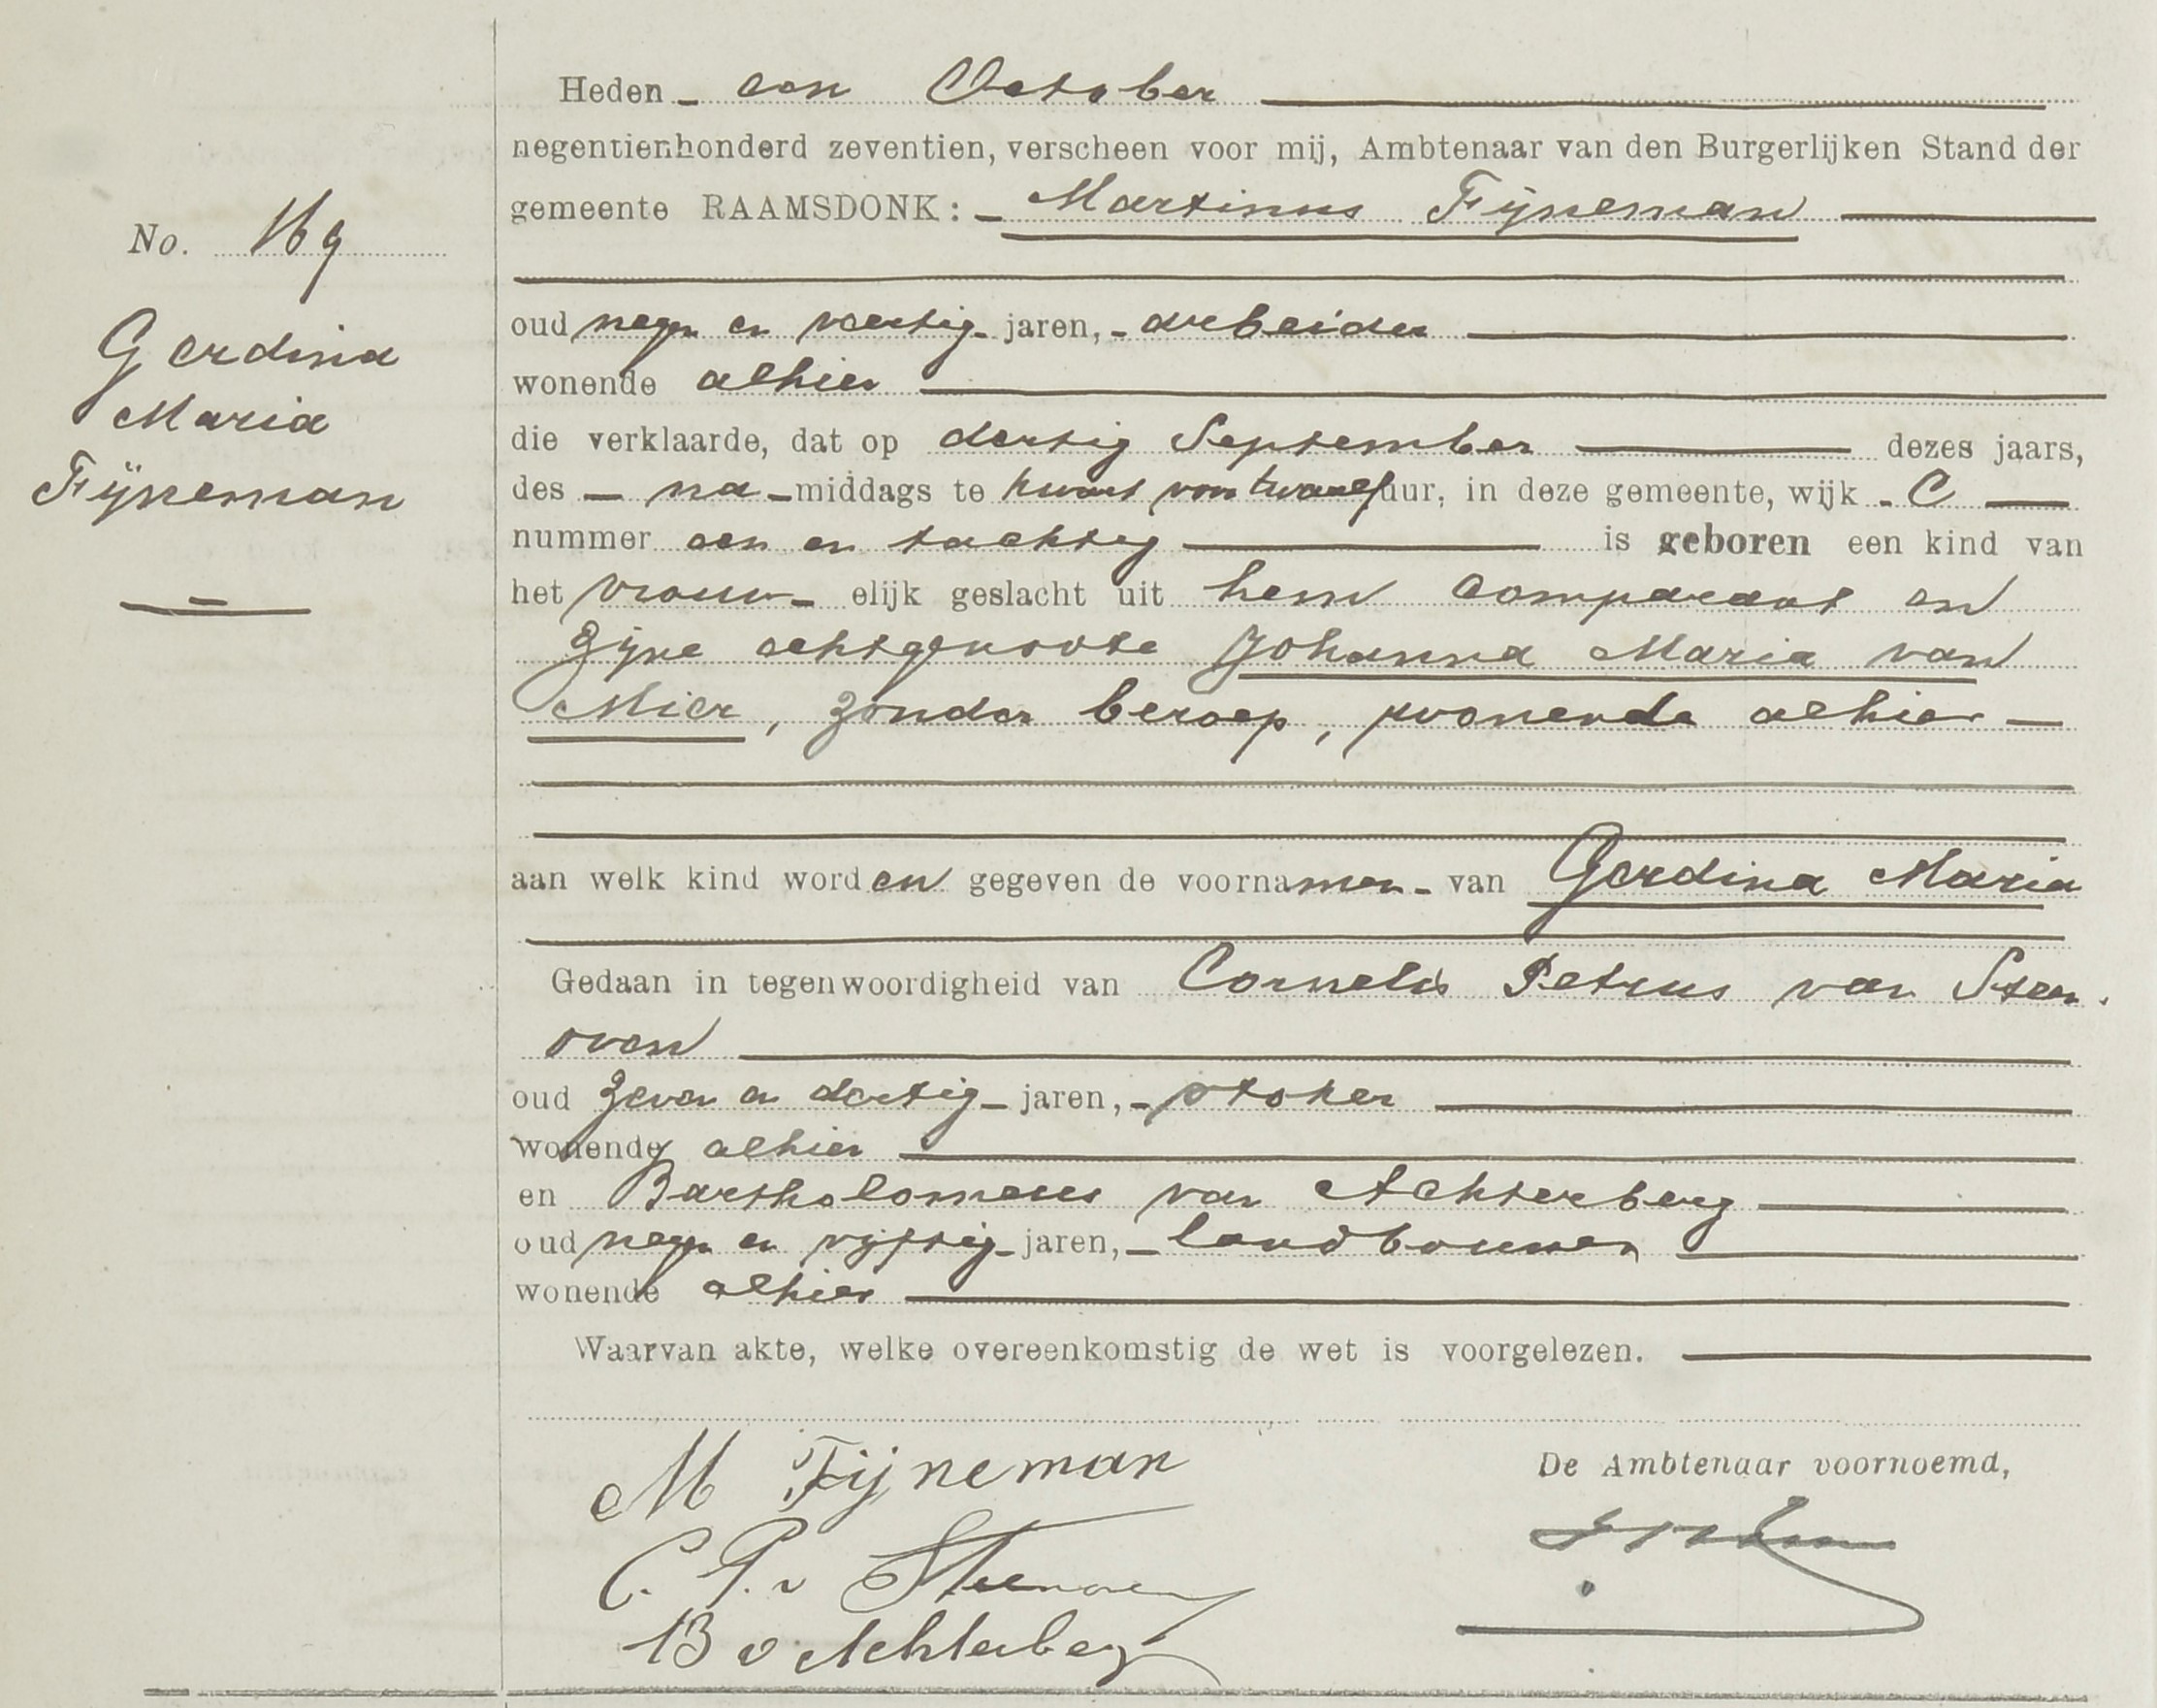 No. 169
Gerdina
Maria
Fijneman
Heden een October
negentienhonderd zeventien, verscheen voor mij, Ambtenaar van den Burgerlijken Stand der
gemeente RAAMSDONK: Martinus Fijneman
oud negen en veertig jaren, arbeider
wonende alhier
die verklaarde, dat op dertig September dezes jaars,
des na-middags te kwart voor twaalf uur, in deze gemeente, wijk C
nummer een en tachtig is geboren een kind van
het vrouw- elijk geslacht uit hem comparant en
zijne echtgenoote Johanna Maria van
Mier, zonder beroep, wonende alhier
aan welk kind worden gegeven de voornamen van Gerdina Maria
Gedaan in tegenwoordigheid van Cornelis Petrus van Steen-
oven
oud zeven en dertig jaren, stoker
wonende alhier
en Bartholomeus van Achterberg
oud negen en vijftig jaren, landbouwer
wonende alhier
Waarvan akte, welke overeenkomstig de wet is voorgelezen.
M Fijneman
De Ambtenaar voornoemd,
C. P. v Steenoven
B v Achterberg